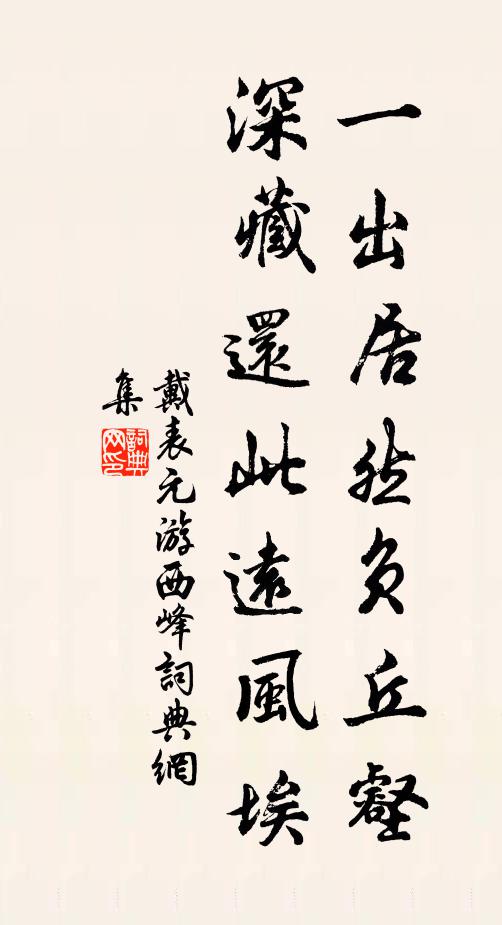 一出居然負丘壑
深藏還此遠風埃
戴表元游西峰詞典網
集
詞典網印